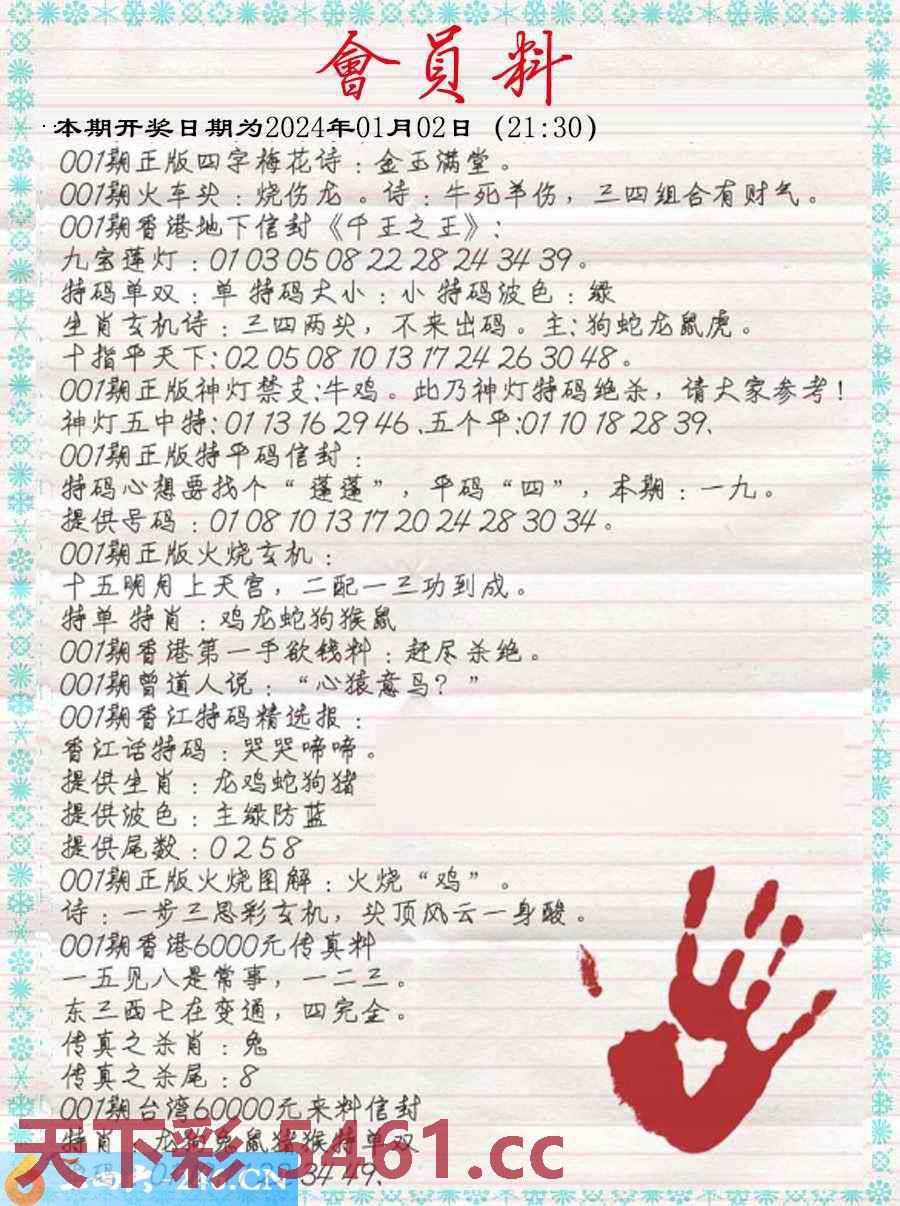 會員料
本期开奖日期为2024年01月02日（21:30）
001期正版四字梅花诗：金玉满堂。
001期火车头：烧伤龙。诗：牛死羊伤，三四组合有财气。
001期香港地下信封《千王之王》：
九宝莲灯：01 03 05 08 22 28 24 34 39。
特码单双：单 特码大小：小 特码波色：绿
生肖玄机诗：三四两头，不来出码。主：狗蛇龙鼠虎。
十指平天下：02 05 08 10 13 17 24 26 30 48。
001期正版神灯禁支：牛鸡。此乃神灯特码绝杀，请大家参考！
神灯五中特：01 13 16 29 46、五个平：01 10 18 28 39、
001期正版特平码信封：
特码心想要找个“蓬蓬”，平码“四”，本期：一九。
提供号码：01 08 10 13 17 20 24 28 30 34。
001期正版火烧玄机：
十五明月上天宫，二配一三功到成。
特单 特肖：鸡龙蛇狗猴鼠
001期香港第一手欲钱料：赶尽杀绝。
001期曾道人说：“心猿意马？”
001期香江特码精选报：
香江话特码：哭哭啼啼。
提供生肖：龙鸡蛇狗猪
提供波色：主绿防蓝
提供尾数：0 2 5 8
001期正版火烧图解：火烧“鸡”。
诗：一步三思彩玄机，头顶风云一身酸。
001期香港6000元传真料
一五见八是常事，一二三。
东三西七在变通，四完全。
传真之杀肖：兔
传真之杀尾：8
001期台湾60000元来料信封
特肖：龙狗兔鼠猪猴特单双
34 49、
天下彩 5461.cc
246.CN